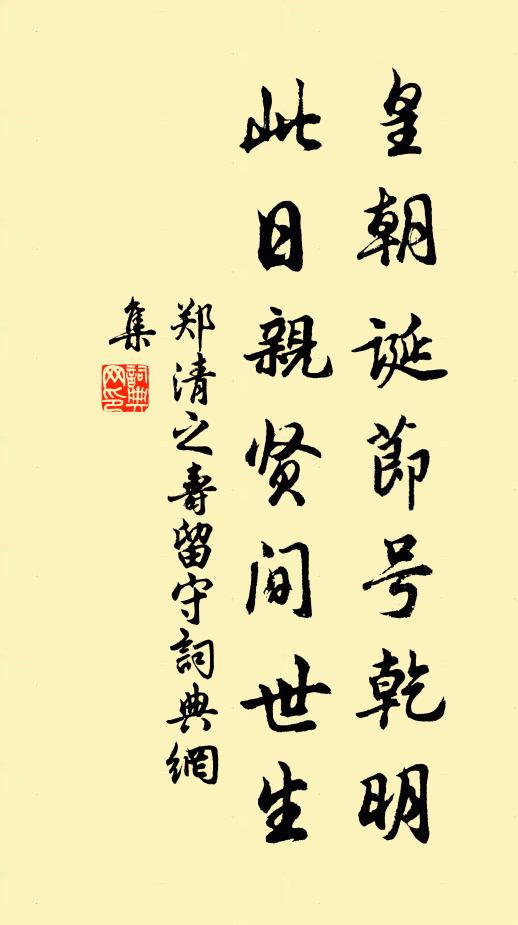 皇朝诞節号乾明
此日親贤间世生
郑清之壽留守詞典網
集
詞典
网印